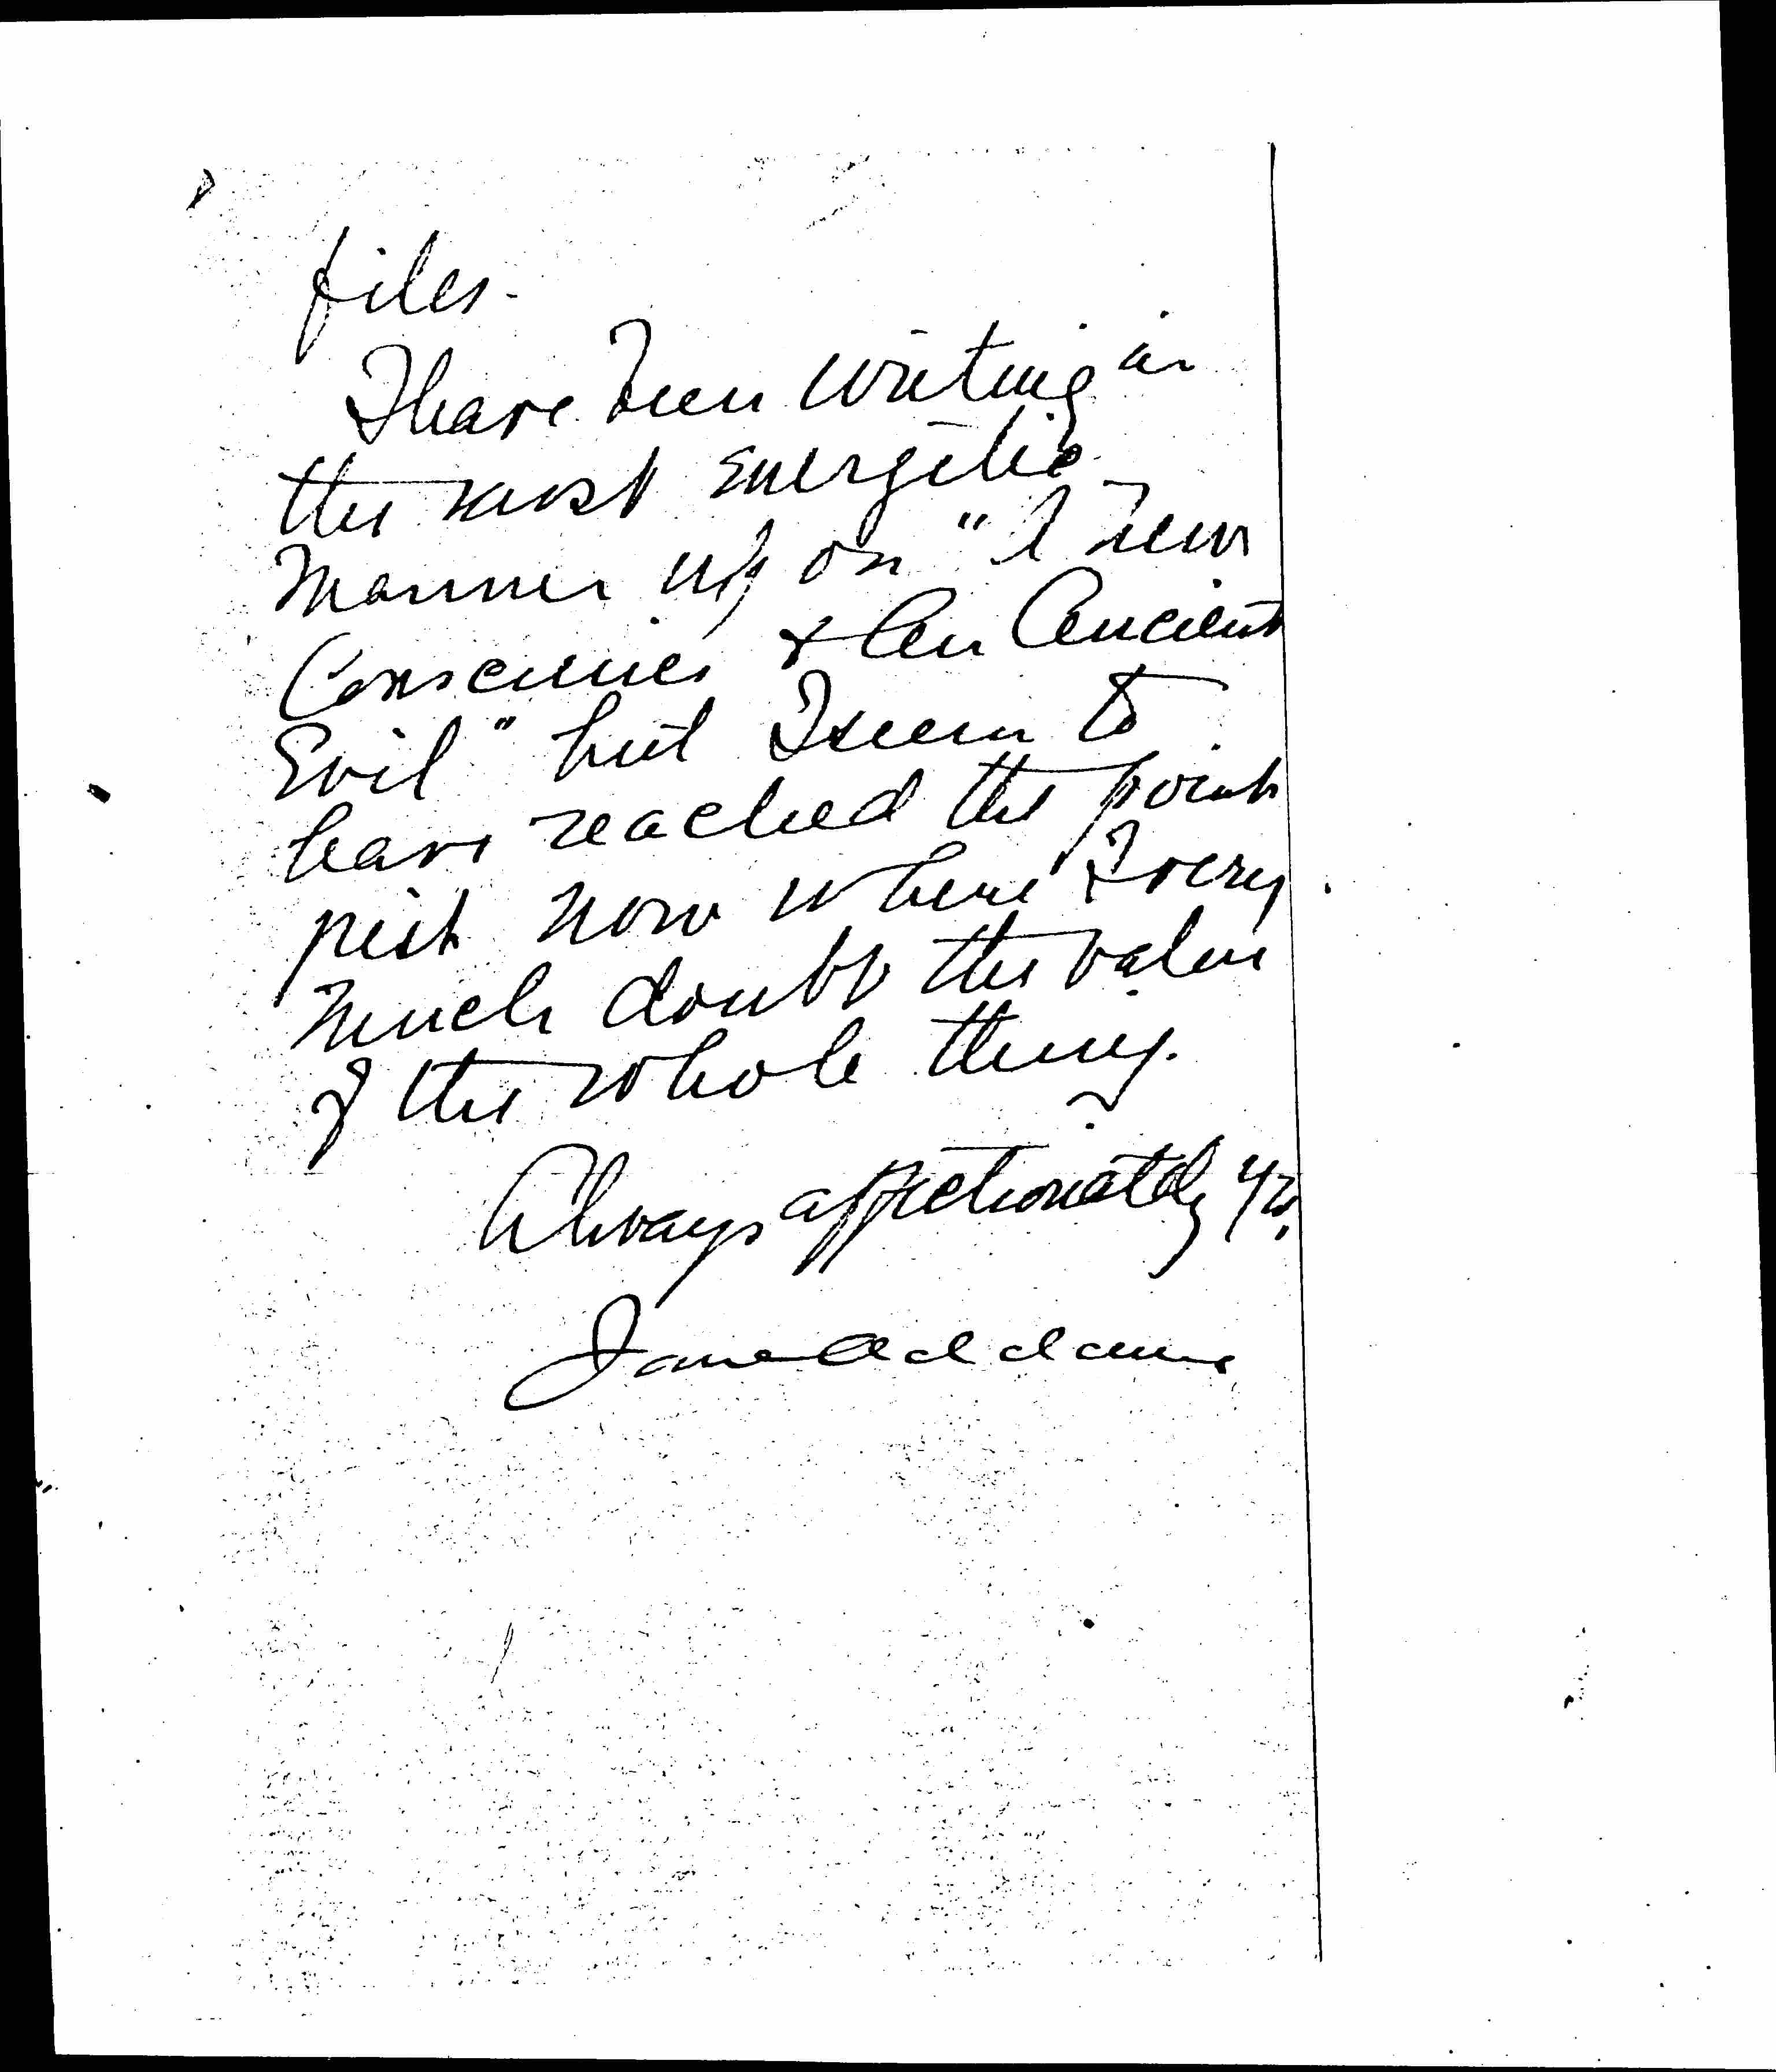 files.
I have been writing in
the most energetic
manner up on "A new
Conscience & An Ancient
Evil" but I seem to
have reached the point
just now where I very
much doubt the value
of the whole thing.
Always affectionately yrs.
Jane Addams